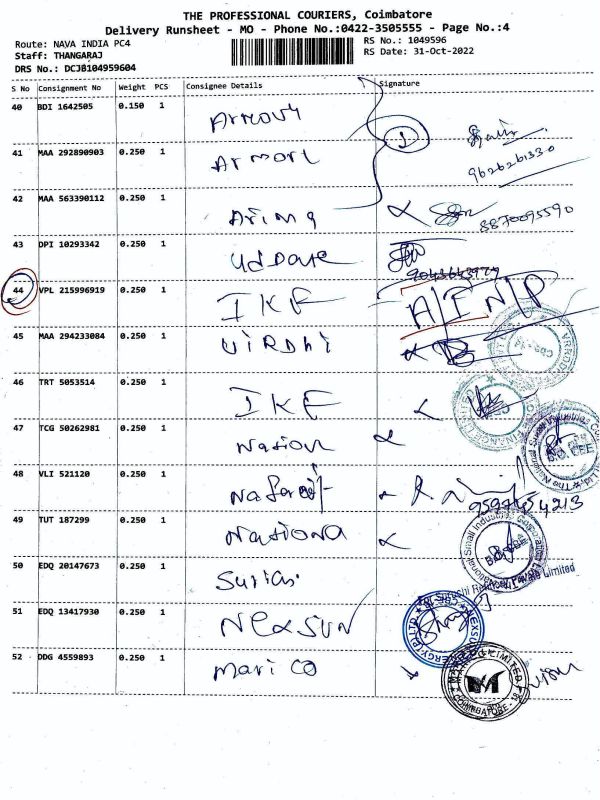 THE PROFESSIONAL COURIERS, Coimbatore
Delivery Runsheet - MO - Phone No.:0422-3505555 - Page No.:4
Route: NAVA INDIA PC4
RS No.: 1049596
Staff: THANGARAJ
RS Date: 31-Oct-2022
DRS No.: DCJB104959604
S No Consignment No Weight PCS Consignee Details Signature
40 BDI 1642505 0.150 1 Armour
41 MAA 292890903 0.250 1 Armour
9626261330
42 MAA 563390112 0.250 1 Arima
8870095590
43 DPI 10293342 0.250 1 Update
44 VPL 215996919 0.250 1 IKF
45 MAA 294233084 0.250 1 UiRDhi
46 TRT 5053514 0.250 1 IKF
47 TCG 50262981 0.250 1 Nation
48 VLI 521120 0.250 1
9597454213
49 TUT 187299 0.250 1 Nationa
50 EDQ 20147673 0.250 1
Private Limited
51 EDQ 13417930 0.250 1 NexSUN
52 DDG 4559893 0.250 1 Mari CO